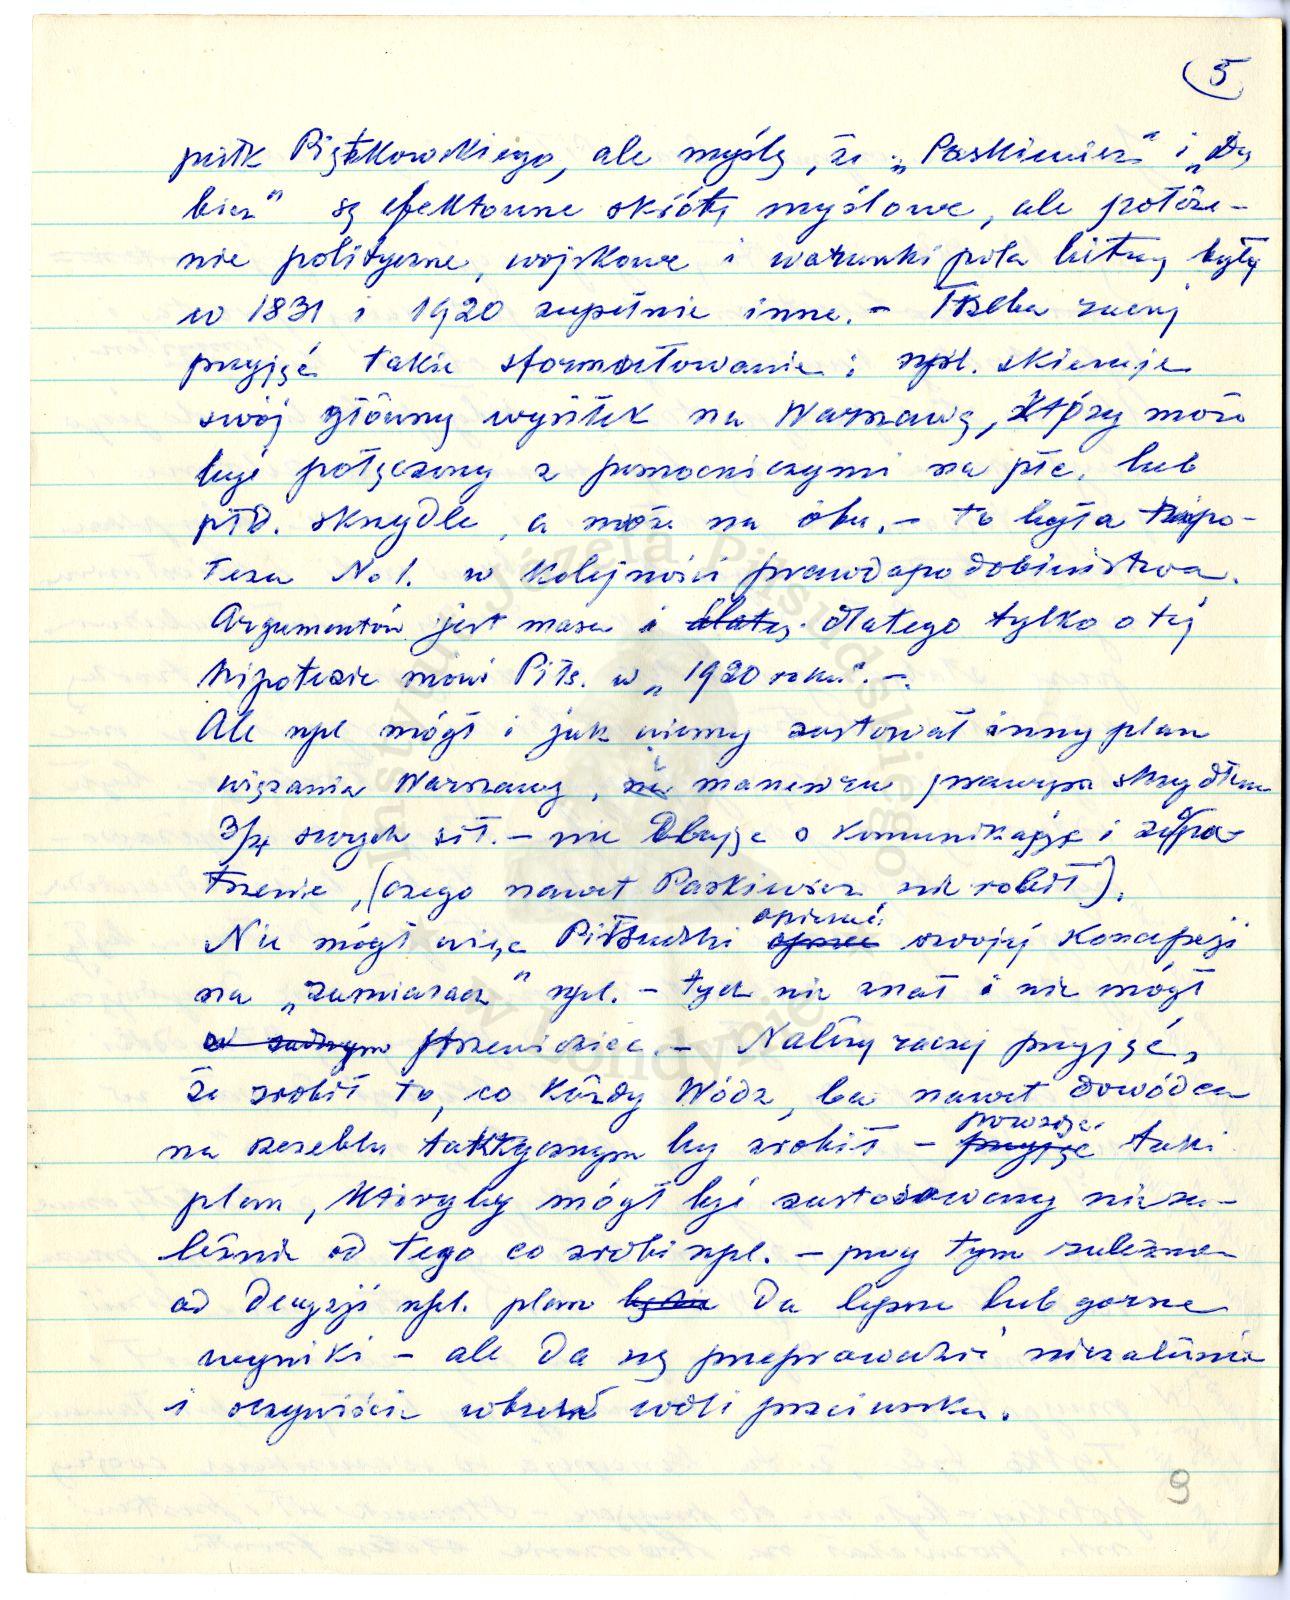 5
płk Piątkowskiego, ale myślę, że „Paskiewicz" i „Dy
bicz" są efektowne skróty myślowe, ale położe-
nie polityczne, wojskowe i warunki pola bitwy były
w 1831 i 1920 zupełnie inne. – Trzeba raczej
przyjąć takie sformułowanie: npl. skieruje
swój główny wysiłek na Warszawę, który może
być połączony z pomocniczymi na płc. lub
płd. skrzydle, a może na obu. – to była hipo-
teza No 1. w kolejności prawdopodobieństwa.
Argumentów jest masa i dlatego tylko o tej
hipotezie mówi Piłs. w „1920 roku". –
Ale npl mógł i jak wiemy zastosował inny plan
wiązania Warszawy, i manewru prawym skrzydłem
3/4 swych sił. – nie dbając o komunikację i zaopa-
trzenie, (czego nawet Paskiewicz nie robił).
Nie mógł więc Piłsudski opierać swojej koncepcji
na „zamiarach" npl. – tych nie znał i nie mógł
przewidzieć. – Należy raczej przyjąć,
że zrobił to, co każdy Wódz, ba nawet dowódca
na szczeblu taktycznym by zrobił – taki
plan, któryby mógł być zastosowany nieza-
leżnie od tego co zrobi npl. – przy tym zależnie
od decyzji npl. plan da lepsze lub gorsze
wyniki – ale da się przeprowadzić niezależnie
i oczywiście wbrew woli przeciwnika.
9
Instytut Józefa Piłsudskiego
w Londynie